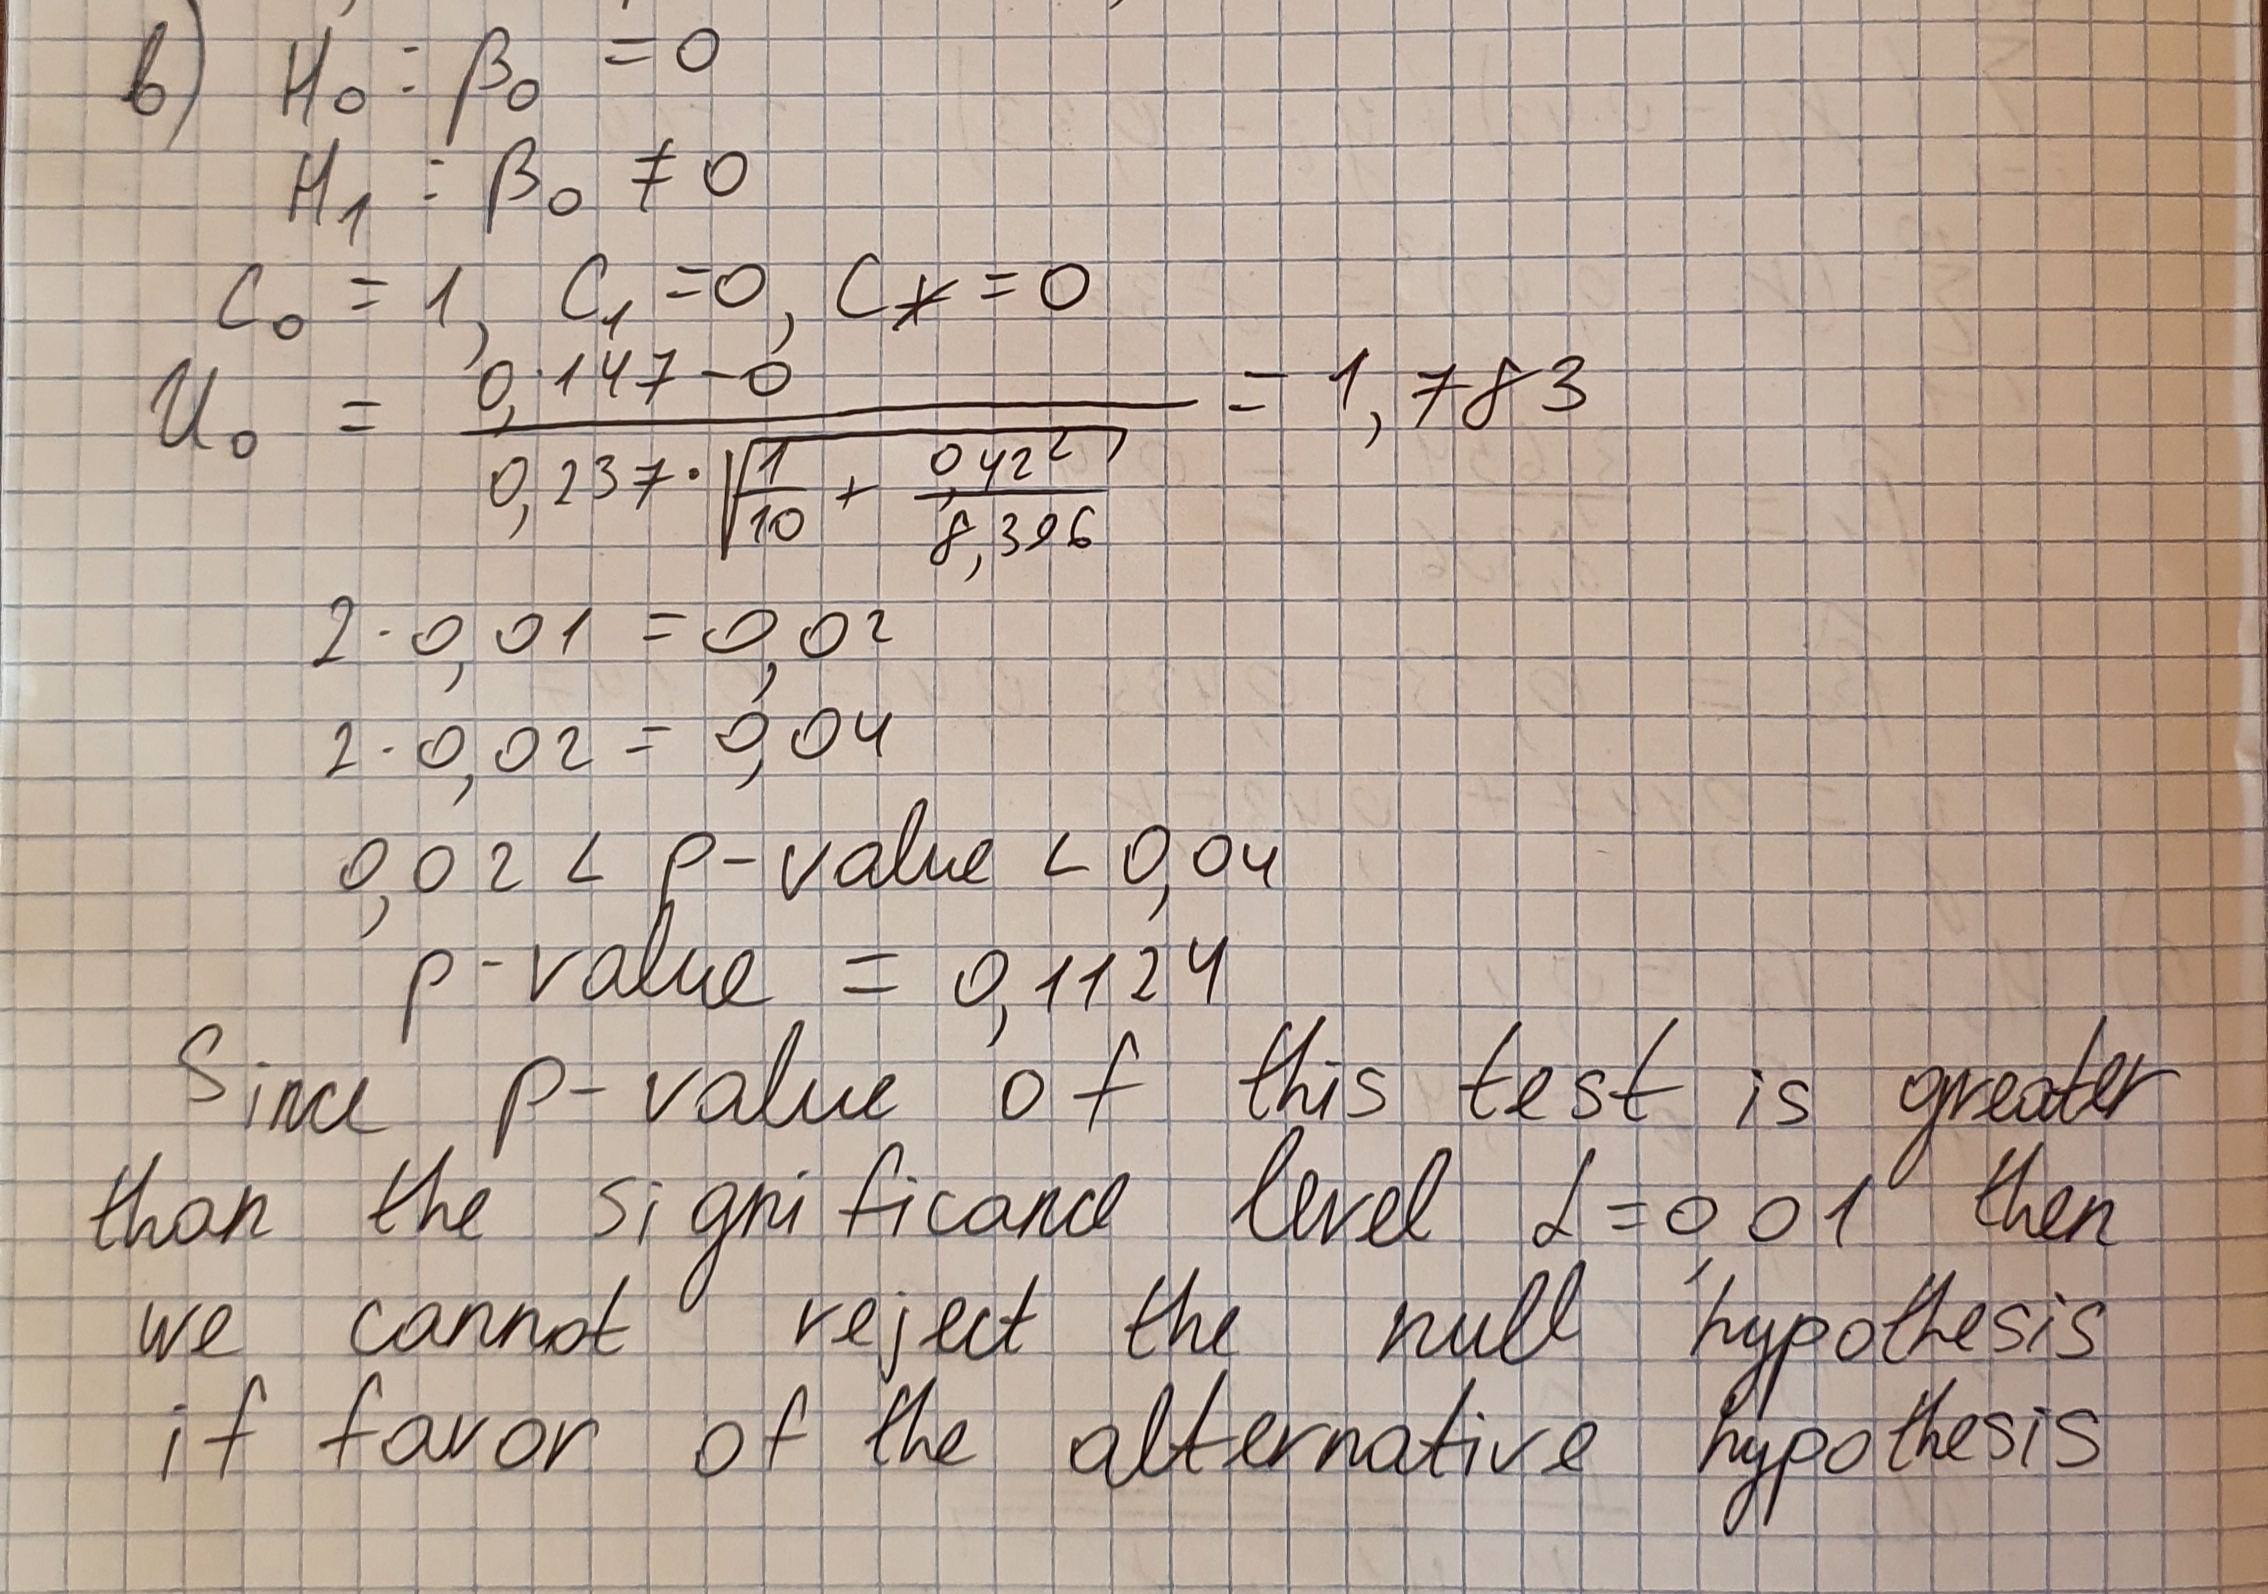 b) H₀ : β₀ = 0
H₁ : β₀ ≠ 0
C₀ = 1, C₁ = 0, Cₓ = 0
U₀ = (0,147 - 0) / (0,237 · √(1/10 + 0,42²/8,396)) = 1,783
2 · 0,01 = 0,02
2 · 0,02 = 0,04
0,02 < p-value < 0,04
p-value = 0,1124
Since p-value of this test is greater
than the significance level α = 0,01 then
we cannot reject the null hypothesis
if favor of the alternative hypothesis